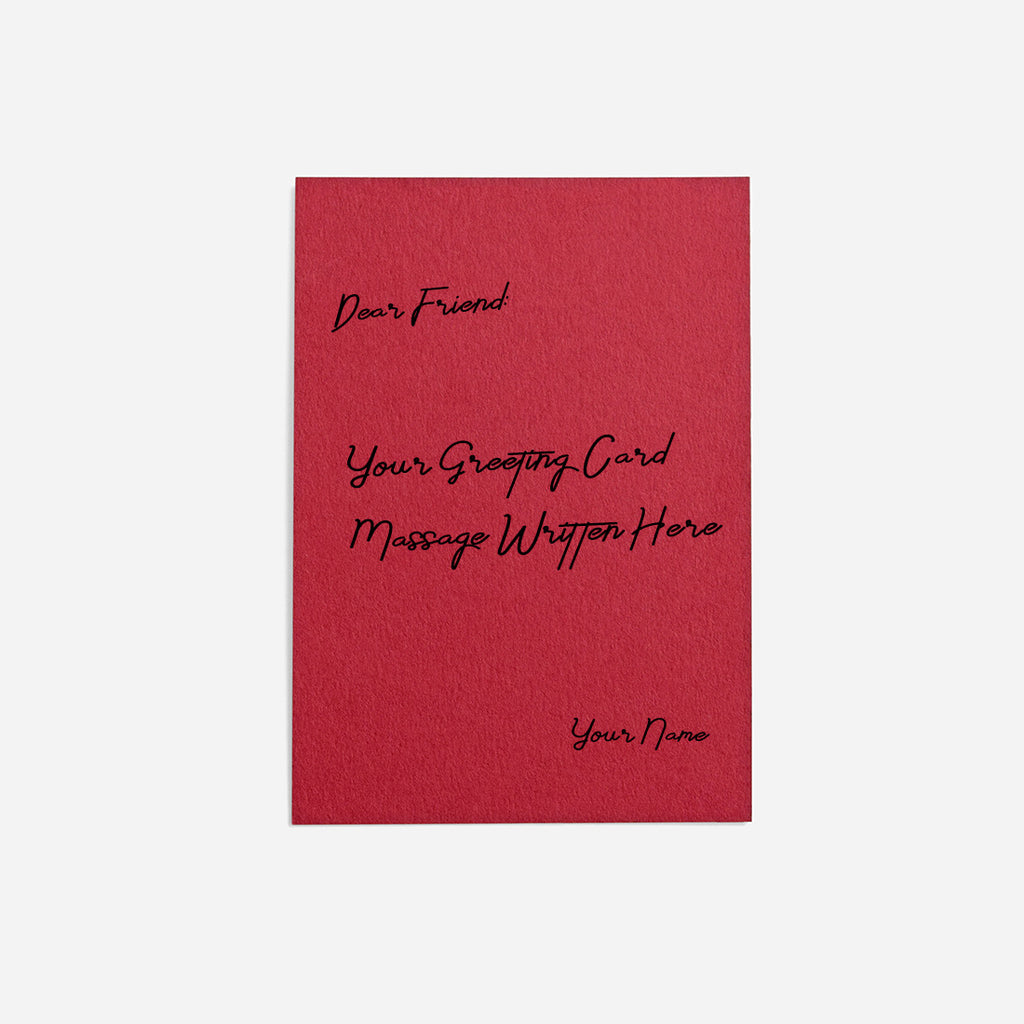 Dear Friend:
Your Greeting Card
Massage Written Here
Your Name